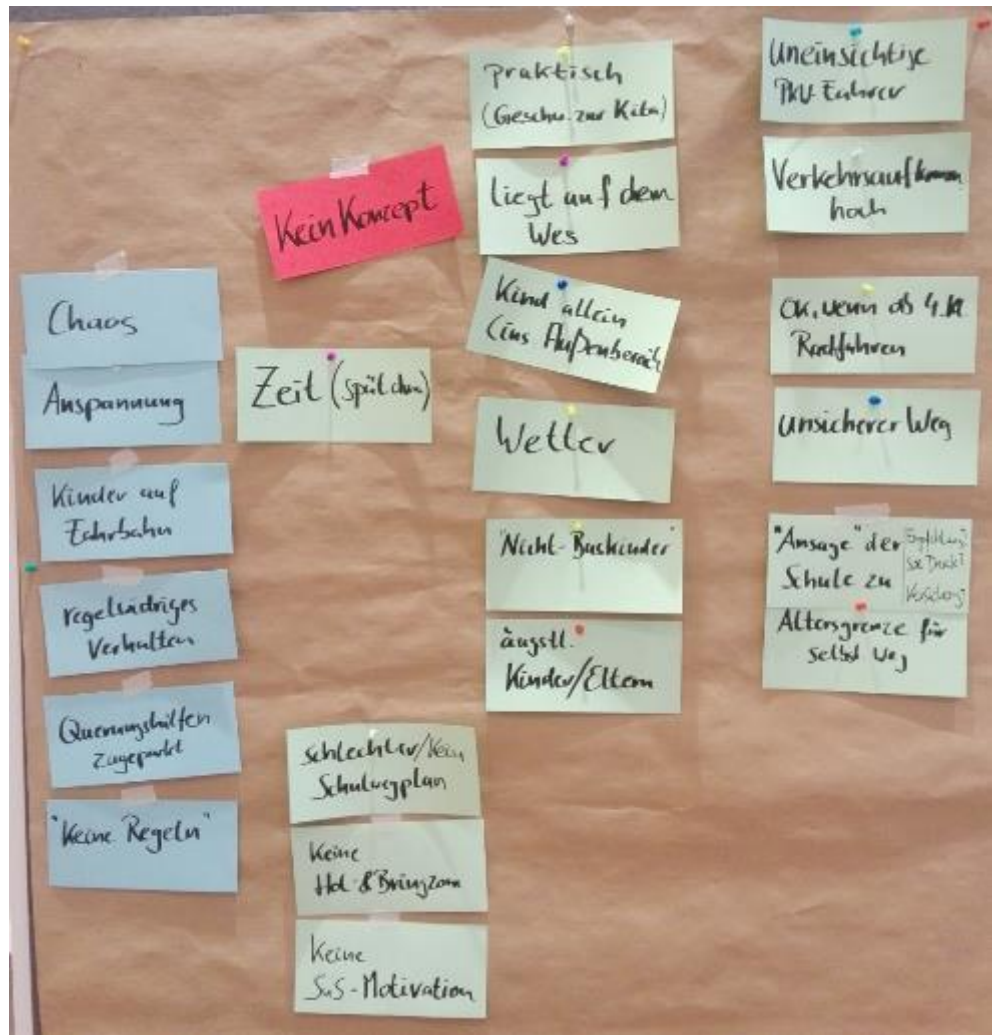 Chaos
Anspannung
Kinder auf
Fahrbahn
regelwidriges
Verhalten
Querungshilfen
zugeparkt
"Keine Regeln"
Kein Konzept
Zeit (spät dran)
schlechter/Kein
Schulwegplan
Keine
Hol-&Bringzone
Keine
SuS-Motivation
praktisch
(Geschw. zur Kita)
liegt auf dem
Weg
Kind allein
(ins Außenbereich
Wetter
"Nicht-Buskinder"
ängstl.
Kinder/Eltern
Uneinsichtige
PKW-Fahrer
Verkehrsaufkommen
hoch
OK, wenn ab 4. Kl.
Radfahren
unsicherer Weg
"Ansage" der
Schule zu
Empfehlung?
Altersgrenze für
selbst Weg